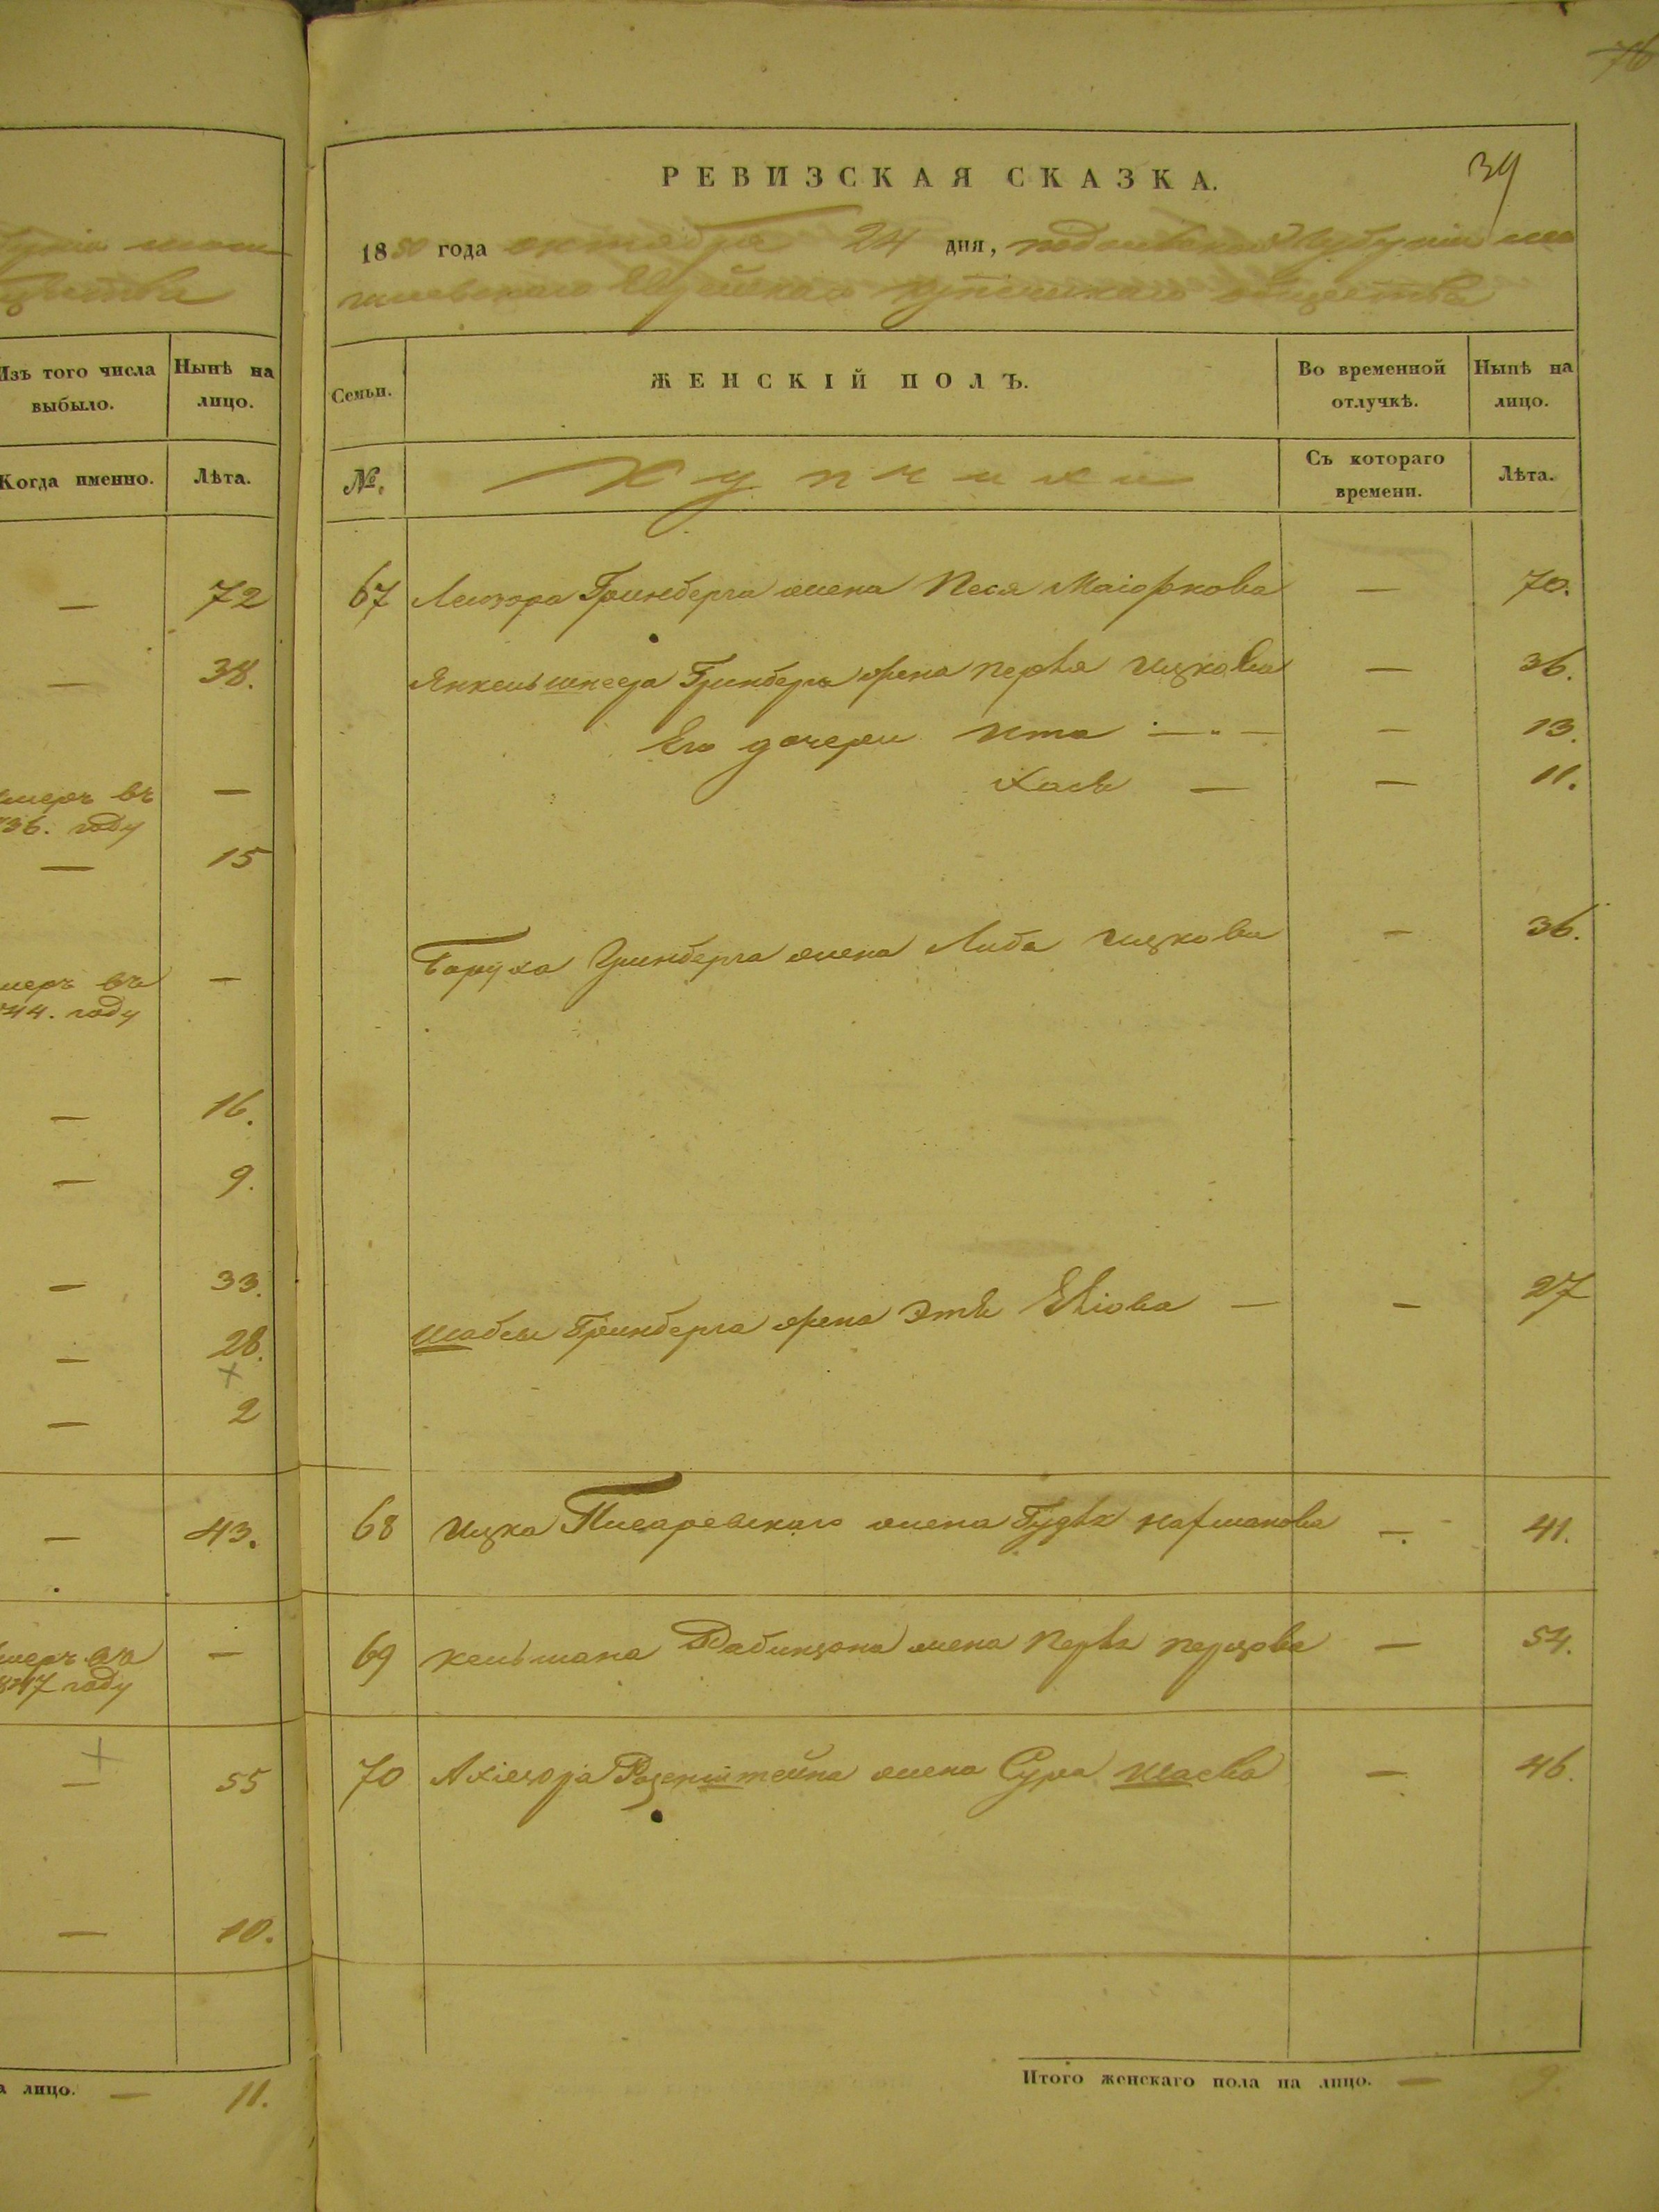 76
РЕВИЗСКАЯ СКАЗКА.
39
1850 года октября 24 дня, Подольской Губерніи мо
гилевскаго Еврейскаго купеческаго общества
Изъ того числа выбыло.
Нынѣ на лицо.
Семьи.
ЖЕНСКІЙ ПОЛЪ.
Во временной отлучкѣ.
Нынѣ на лицо.
Когда именно.
Лѣта.
№.
Купчихи
Съ котораго времени.
Лѣта.
— 72
67 Лейзора Гринберга жена Песя Маіоркова — 70.
— 38.
Янкель Шнеера Гринберга жена Перля Ицкова — 36.
Его дочери Ита — — 13.
Хася — — 11.
умеръ въ —
36. году
— 15
Боруха Гринберга жена Либа Ицкова — 36.
умеръ въ —
44. году
— 16.
— 9.
— 33.
Шабсы Гринберга жена Этя — — 27
— 28.
— 2
— 43.
68 Ицка Писаревскаго жена Гудля — 41.
умеръ въ —
1847 году
69 Кельмана Рабинзона жена Перля Перцова — 54.
— 55
70 Розенштейна жена Сура Шаева — 46.
— 10.
а лицо. — 11.
Итого женскаго пола на лицо. — 9.